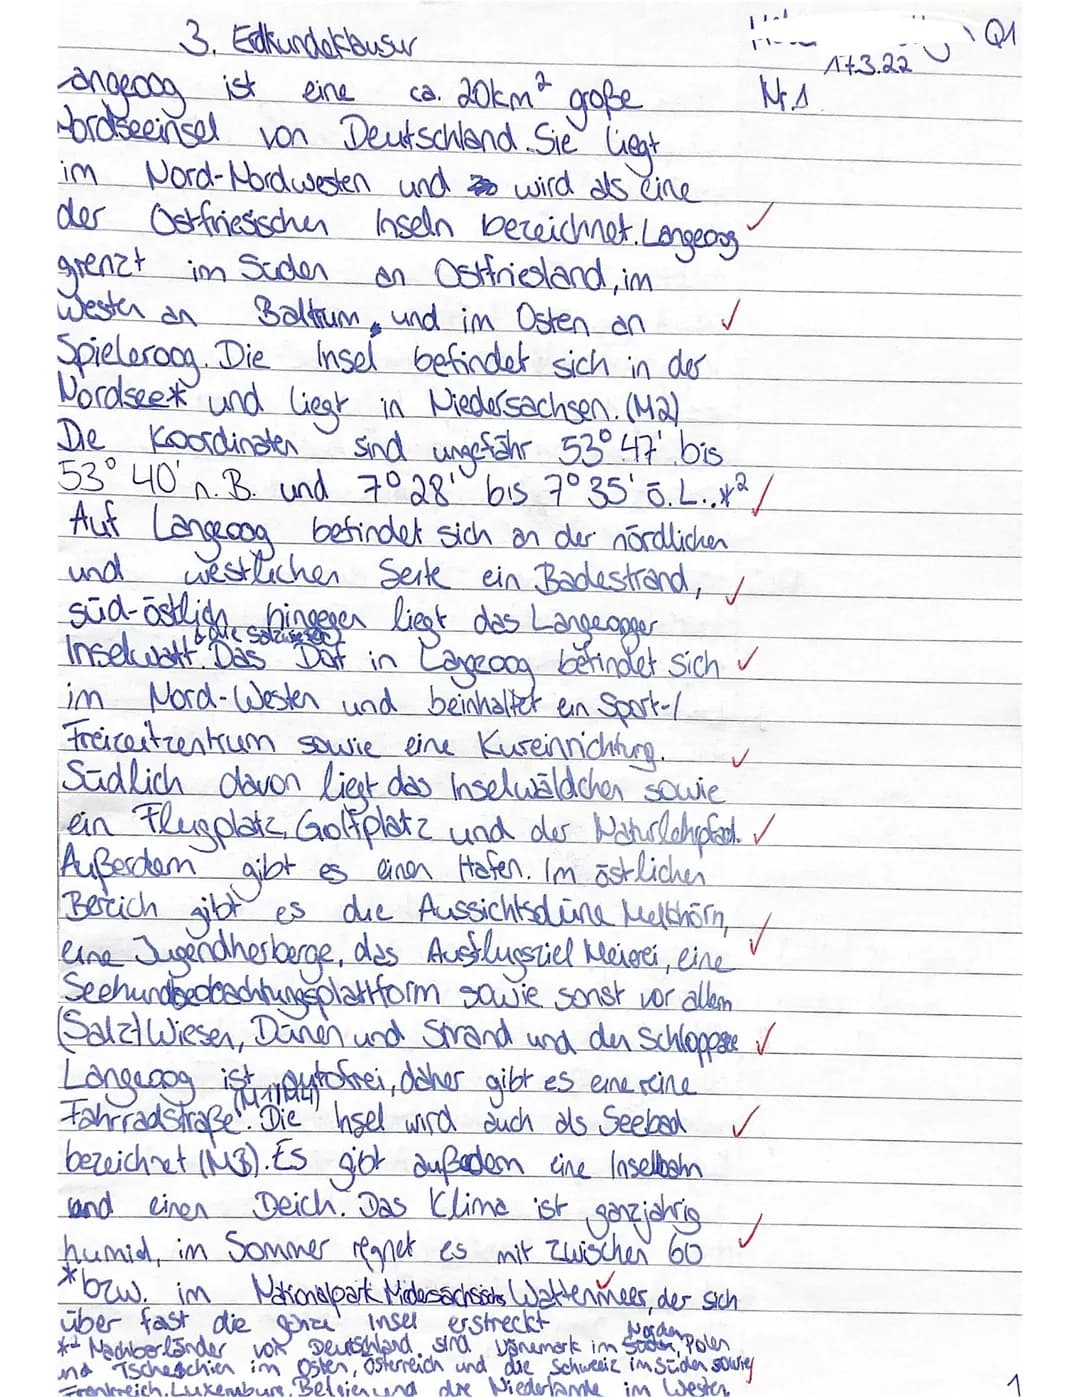 3. Erdkundeklausur
Q1
17.3.22
Nr. 1
angeoog ist eine ca. 20km² große
Nordseeinsel von Deutschland. Sie liegt
im Nord-Nordwesten und wird als eine
der Ostfriesischen Inseln bezeichnet. Langeoog
grenzt im Süden an Ostfriesland, im
Westen an Baltrum, und im Osten an
Spieleroog. Die Insel befindet sich in der
Nordsee* und liegt in Niedersachsen. (M2)
Die Koordinaten sind ungefähr 53° 47' bis
53° 40' n. B. und 7° 28' bis 7° 35' ö. L..*²
Auf Langeoog befindet sich an der nördlichen
und westlichen Seite ein Badestrand,
süd-östlich hingegen liegt das Langeooger
& die Salzwiesen)
Inselwatt. Das Dorf in Langeoog befindet sich
im Nord-Westen und beinhaltet ein Sport-/
Freizeitzentrum sowie eine Kureinrichtung.
Südlich davon liegt das Inselwäldchen sowie
ein Flugplatz, Golfplatz und der Naturlehrpfad.
Außerdem gibt es einen Hafen. Im östlichen
Bereich gibt es die Aussichtsdüne Melkhörn,
eine Jugendherberge, das Ausflugsziel Meierei, eine
Seehundbeobachtungsplattform sowie sonst vor allem
(Salz)Wiesen, Dünen und Strand und den Schloppsee
Langeoog ist autofrei, daher gibt es eine reine
(M1/M4)
Fahrradstraße. Die Insel wird auch als Seebad
bezeichnet (M3). Es gibt außerdem eine Inselbahn
und einen Deich. Das Klima ist ganzjährig
humid, im Sommer regnet es mit zwischen 60
*bzw. im Nationalpark Niedersächsisches Wattenmeer, der sich
über fast die ganze Insel erstreckt
*² Nachbarländer von Deutschland sind Dänemark im Norden, Polen
und Tschechien im Osten, Österreich und die Schweiz im Süden sowie
Frankreich, Luxemburg, Belgien und die Niederlande im Westen
1